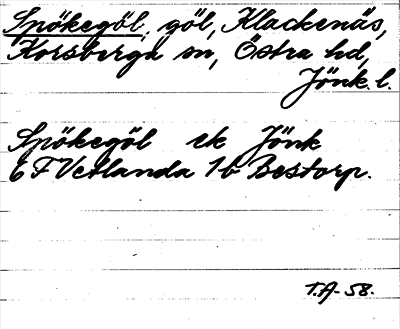 Spökegöl, göl, Klackenäs,
Korsberga sn, Östra hd,
Jönk. l.
Spökegöl ek Jönk
6 F Vetlanda 1b Bestorp.
T.A-58.